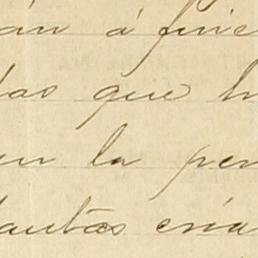 án á fine
das que h
un la pen
tantas cria